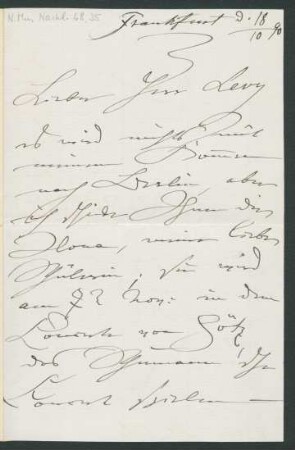 N. Mus. Nachl. 68, 25
Frankfurt d. 18/10 90
Lieber Herr Levy
es wird nichts mit
meinem Kommen
nach Berlin, aber
ich schicke Ihnen die
Ilona, meine liebe
Schülerin, sie wird
am 22 Nov: in dem
Concert von Götz
das Schumann'sche
Concert spielen